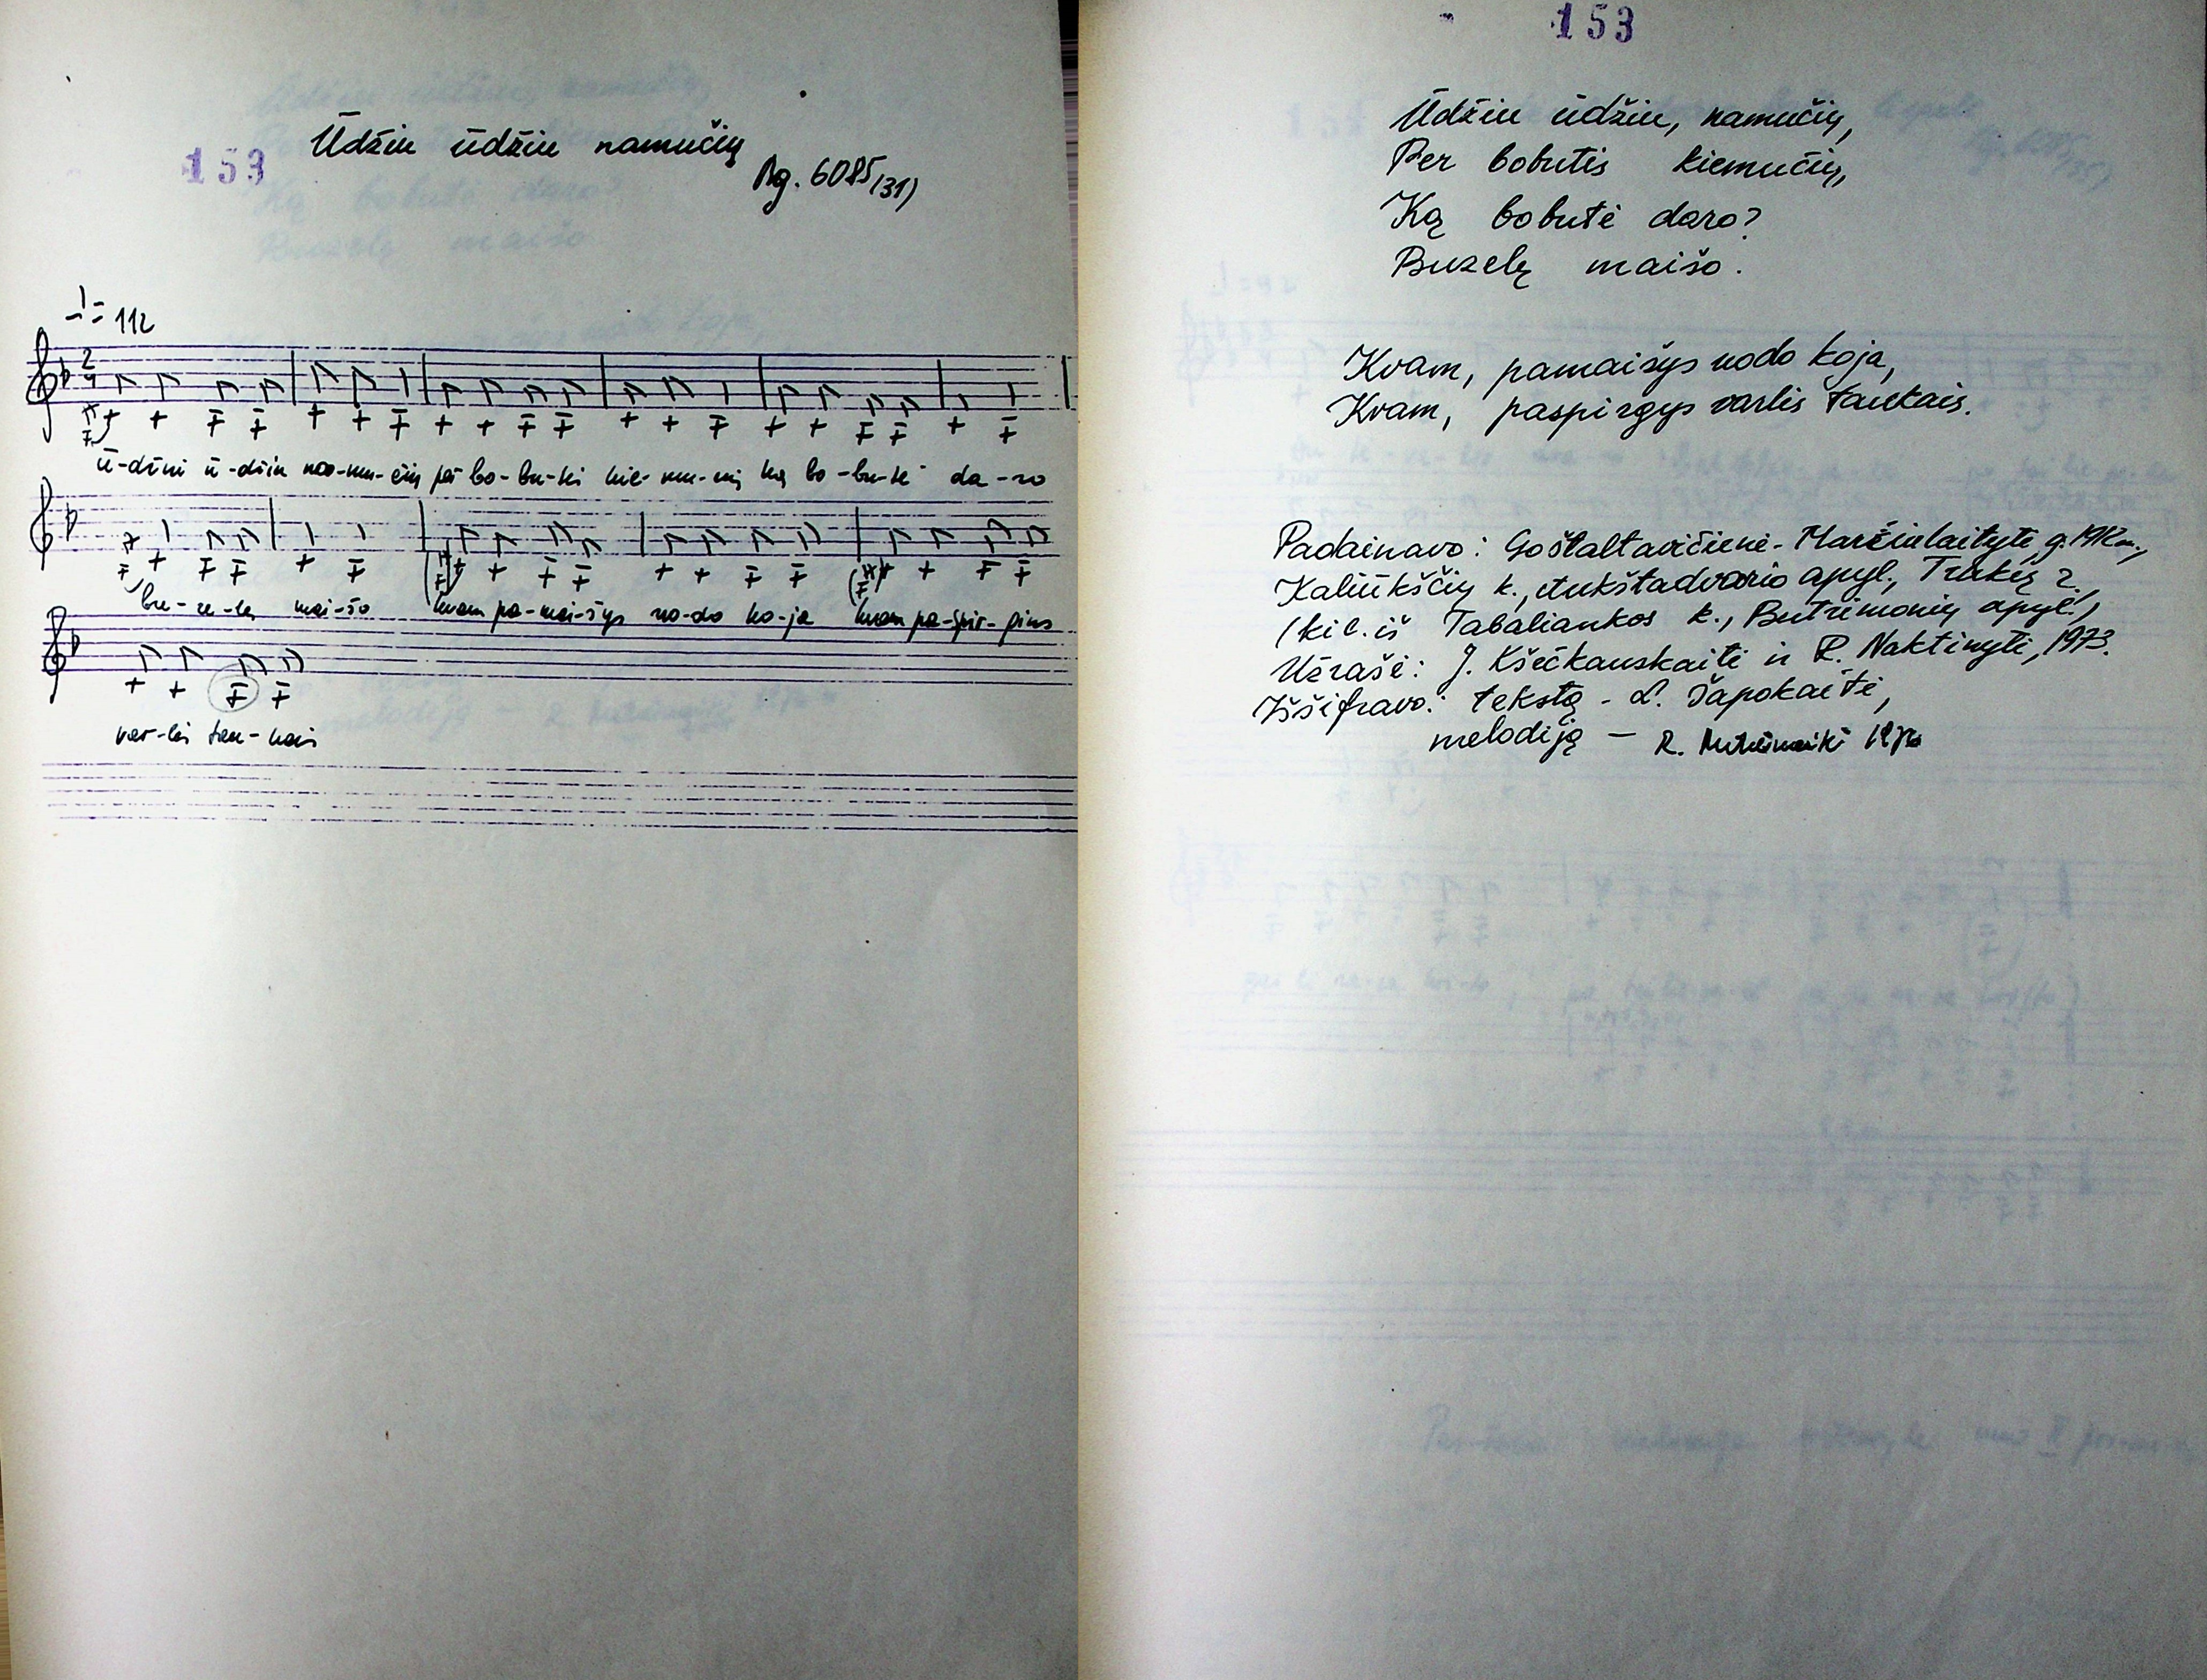 153
Ūdžiu ūdžiu namučių
Mg. 6085(31)
= 112
2
4
ū-džiu ū-džiu na-mu-čių bo-bu-tei kie-mu-čių ką bo-bu-tė da-ro
bu-ze-lę mai-šo kvam pa-mai-šys no-do ko-ja kvam pa-spir-gins
var-lės tau-kais
153
Ūdžiu ūdžiu, namučių,
Per bobutis kiemučių,
Ką bobutė daro?
Buzelę maišo.
Kvam, pamaišys nodo koja,
Kvam, paspirgys varlis taukais.
Padainavo: Goštaltavičienė-Marčiulaitytė, g. 1912 m.,
Kaliūkščių k., Aukštadvario apyl., Trakų
(kil. iš Tabaliaukos k., Butrimonių apyl.)
Užrašė: J. Kšečkauskaitė ir R. Naktinytė, 1973.
Iššifravo: tekstą - L. Šapokaitė,
melodiją - R.